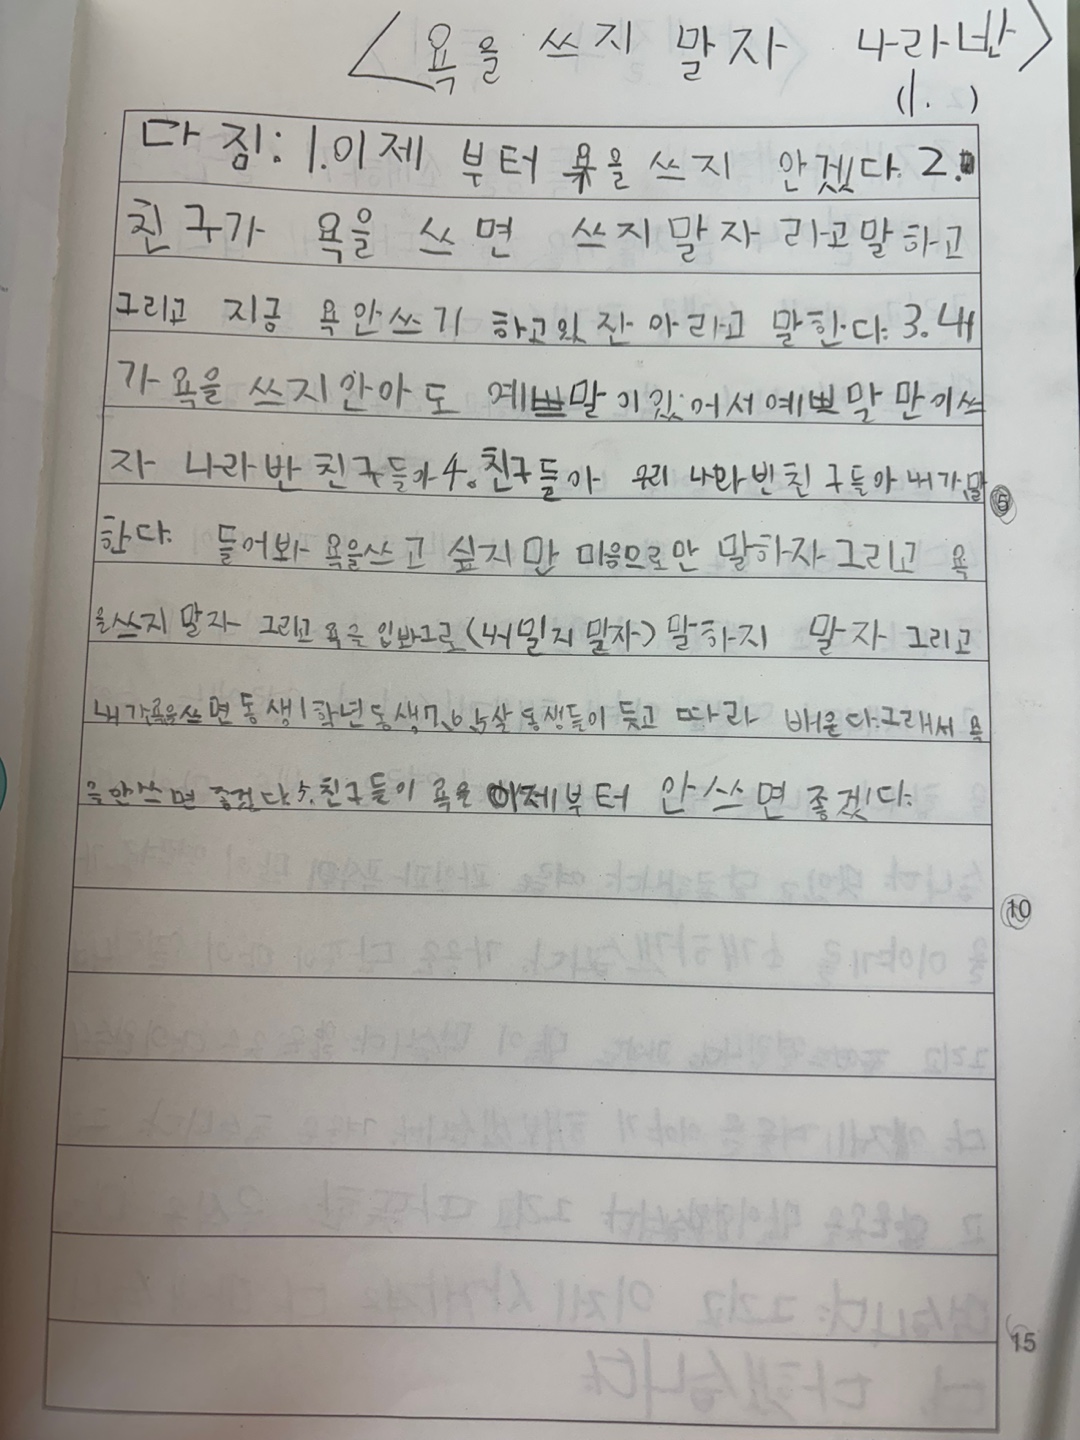 <욕을 쓰지 말자 나라반>
(1. )
다짐: 1.이제 부터 욕을 쓰지 안겠다. 2.
친구가 욕을 쓰면 쓰지말자 라고말하고
그리고 지금 욕 안쓰기 하고있 잔아라고 말한다. 3.내
가 욕을 쓰지안아도 예쁘말이있어서예쁘말만이쓰
자 나라반친구들아4.친구들아 우리 나라반친구들아내가말
한다. 들어봐 욕을쓰고 싶지만 마음으로만 말하자그리고 욕
을쓰지말자 그리고욕을 입바그로(내밀지말자)말하지 말자그리고
내가욕을쓰면동생1학년동생7,6,5살동생들이듯고 따라 배운다.그래서욕
을안쓰면좋겠다5.친구들이 욕을 이제부터 안쓰면좋겠다.
5
10
15